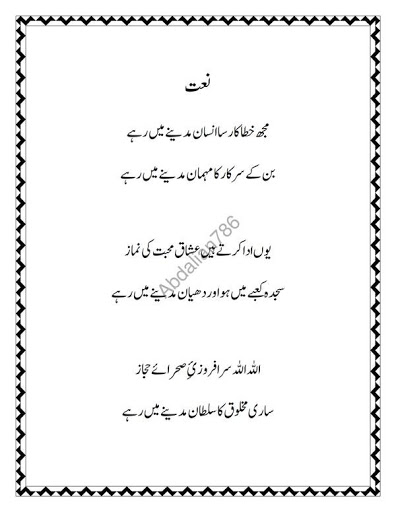 نعت
مجھ خطا کار سا انسان مدینے میں رہے
بن کے سرکار کا مہمان مدینے میں رہے
یوں ادا کرتے ہیں عشاق محبت کی نماز
سجدہ کعبے میں ہو اور دھیان مدینے میں رہے
اللہ اللہ سرافروزیِٔ صحرائے حجاز
ساری مخلوق کا سلطان مدینے میں رہے
Abdalian786